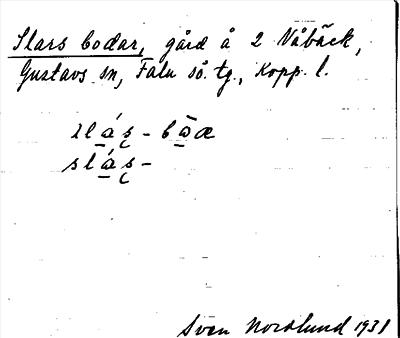 Slars bodar, gård å 2 Våbäck,
Gustavs sn, Falu sö. tg., Kopp. l.
slás-
Sven Nordlund 1931